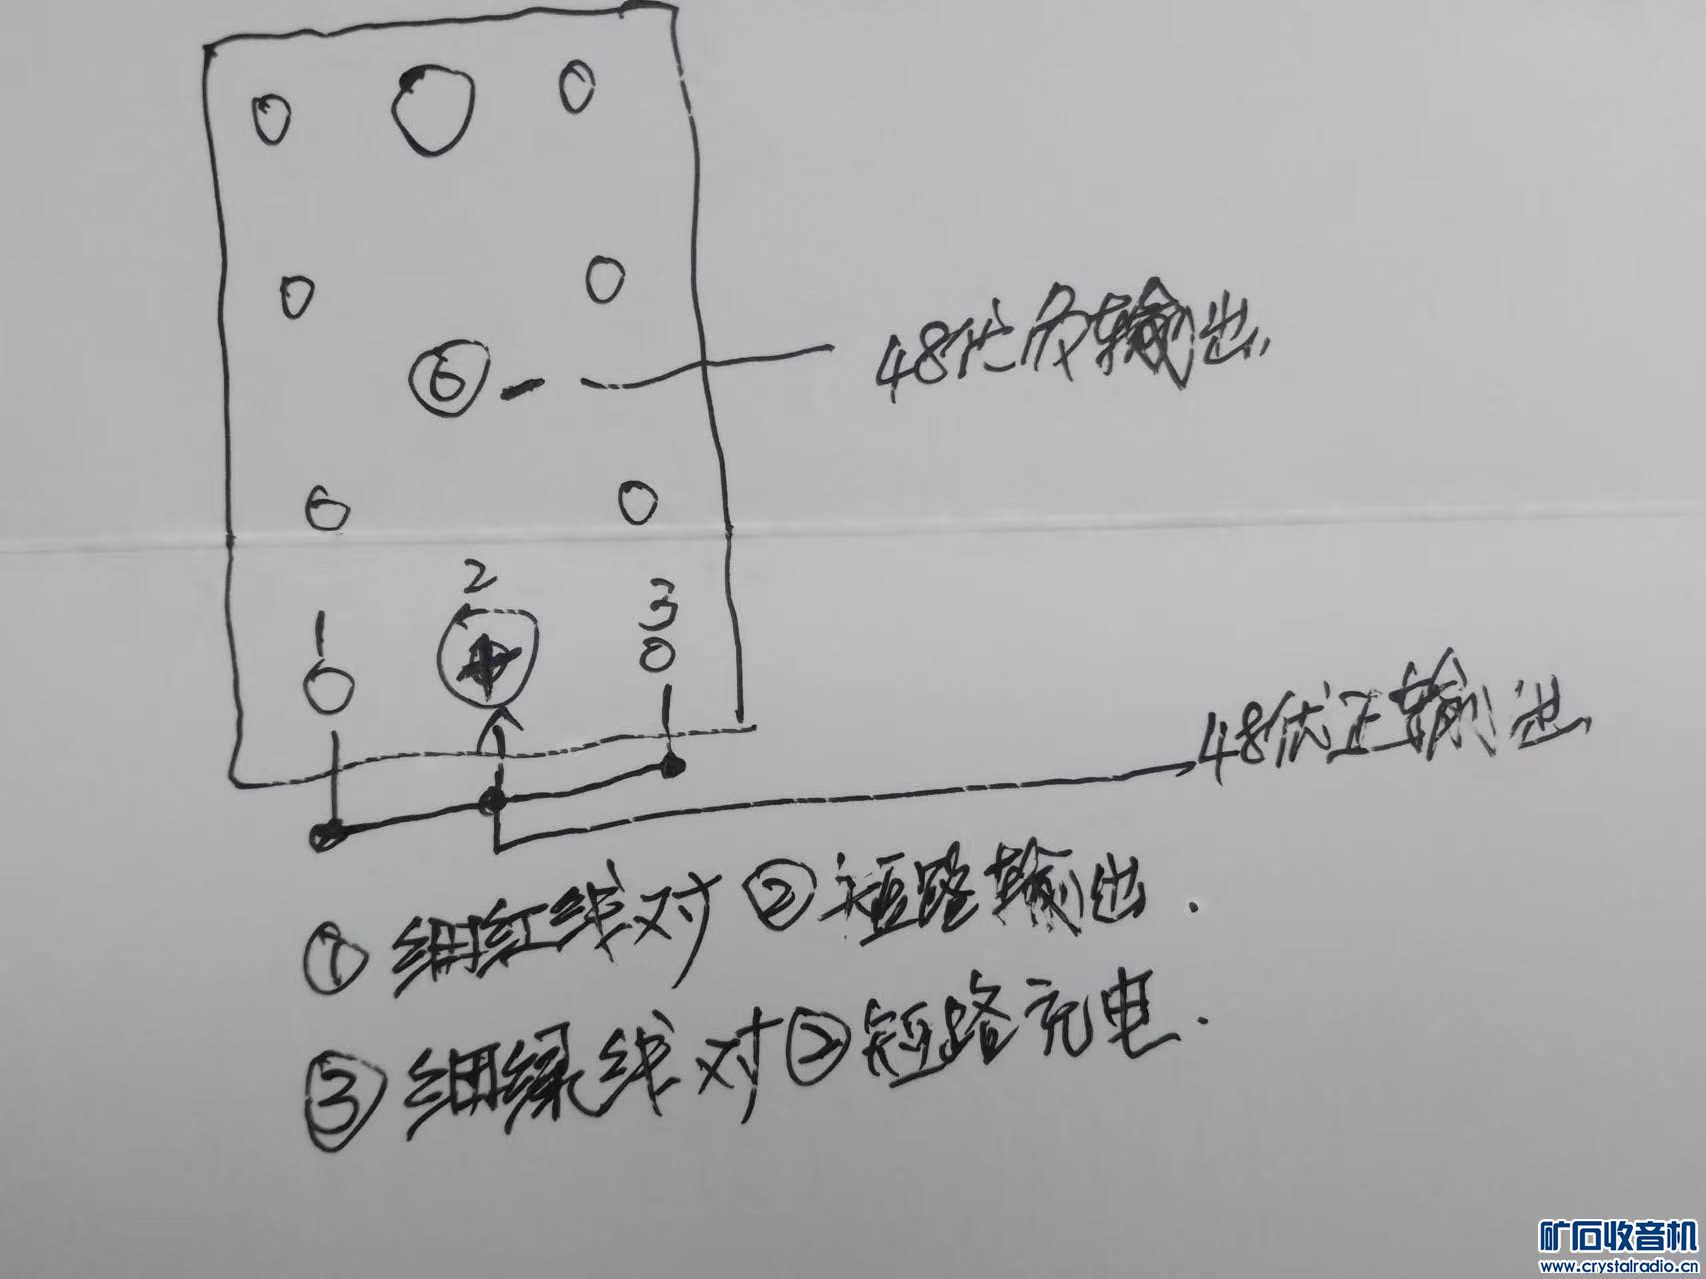 6
48伏负输出
2
1
3
48伏正输出
① 细红线对②短路输出.
③ 细绿线对②短路充电.
矿石收音机
www.crystalradio.cn